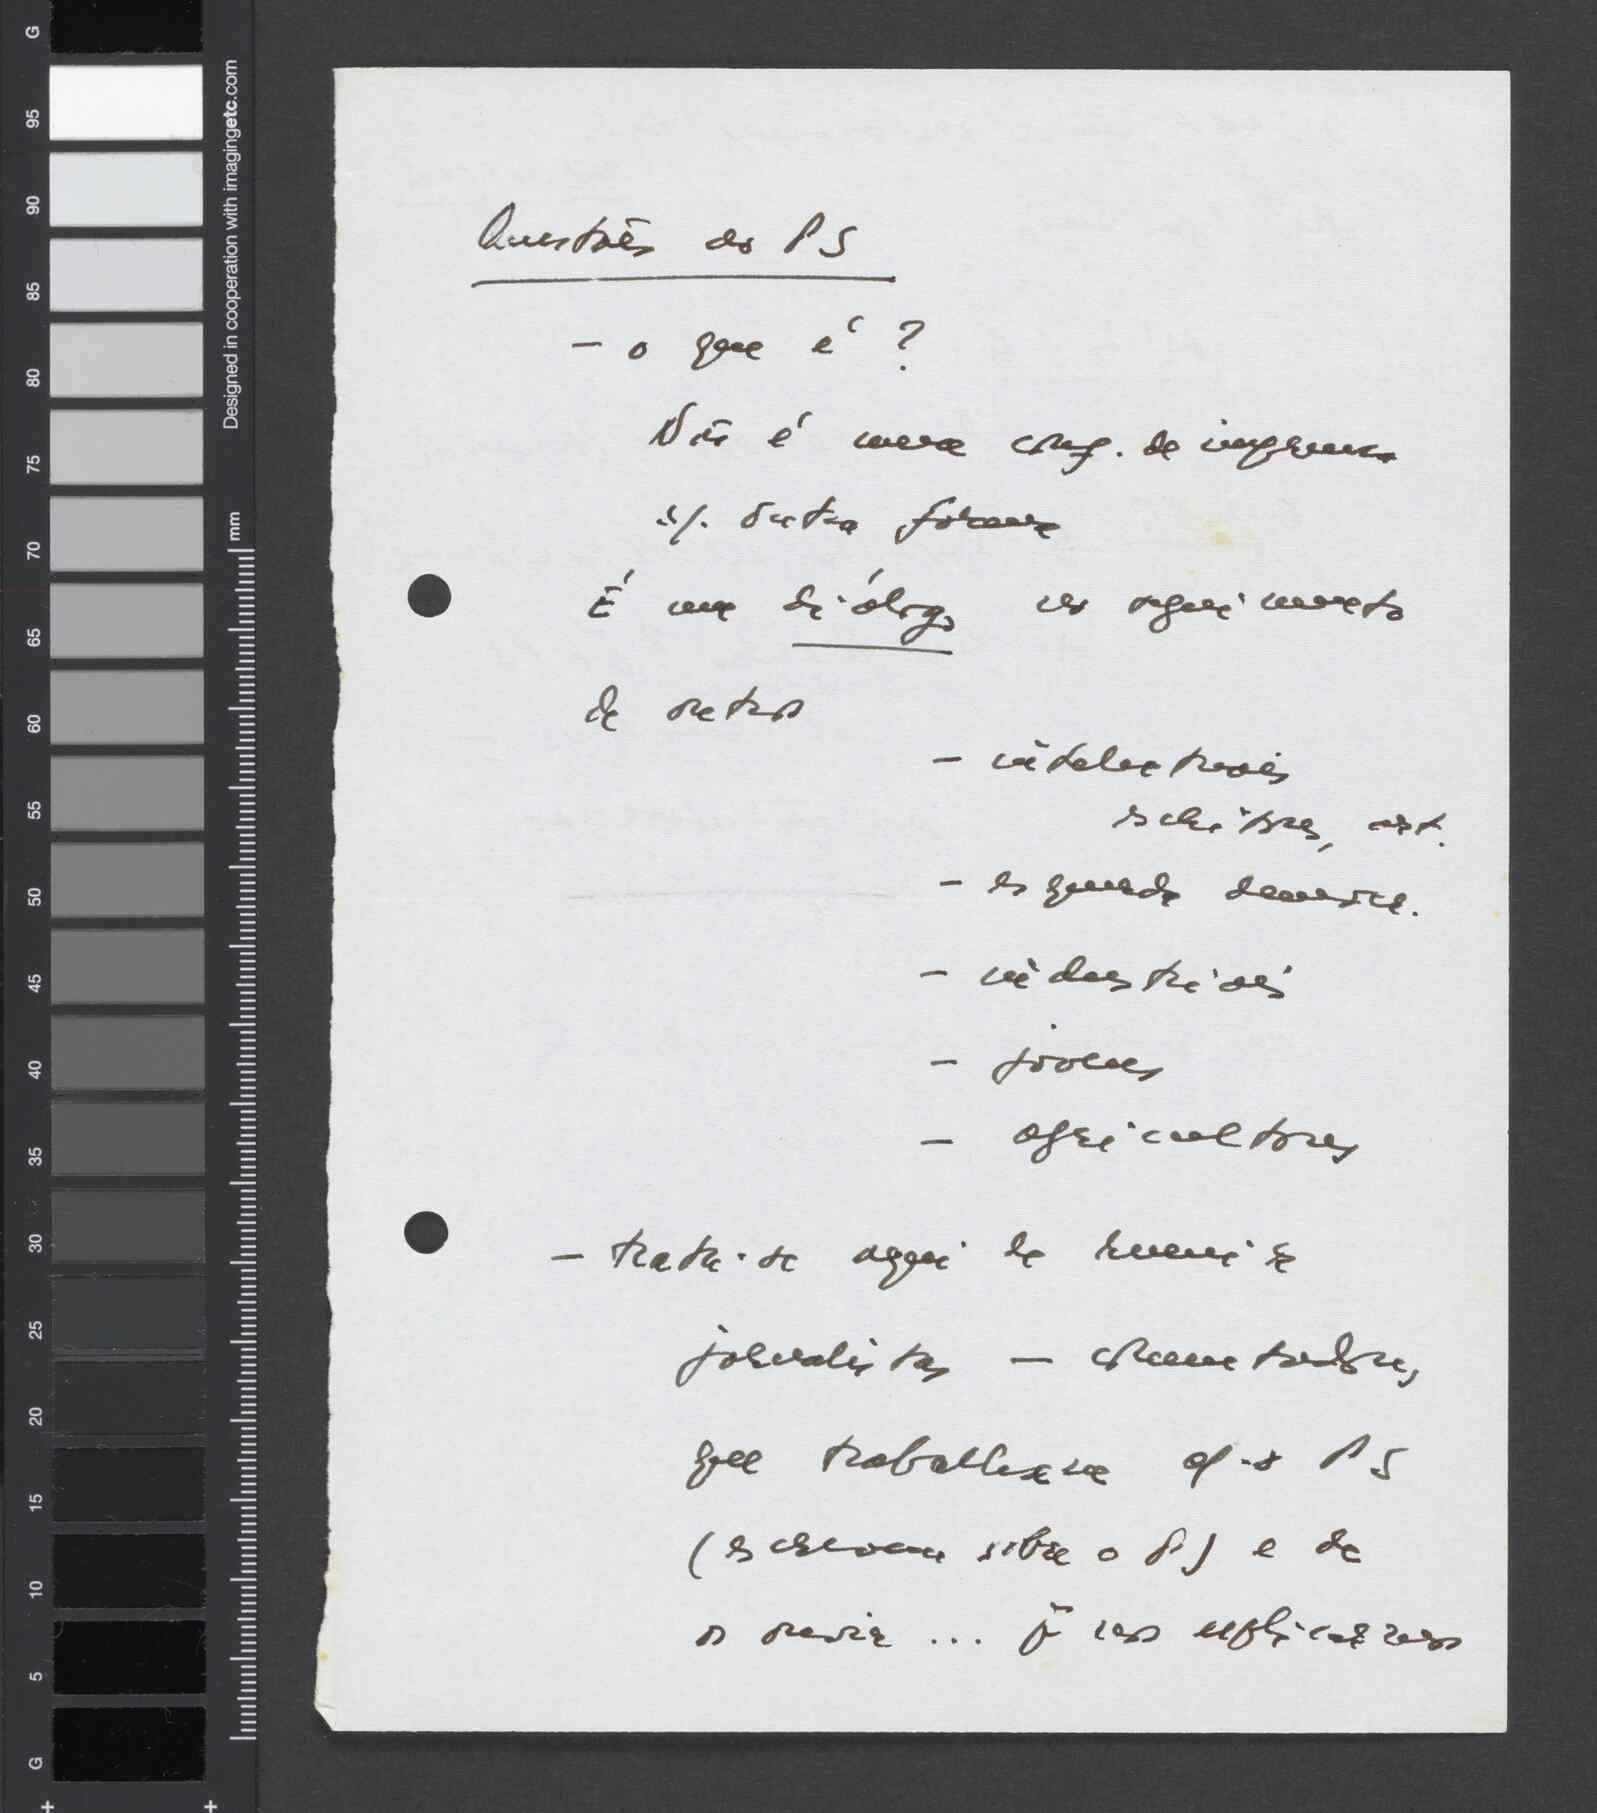 Questões do PS
– o que é ?
Não é uma conf. de imprensa
s/. outra forma
É um diálogo no seguimento
de outros
– intelectuais
escritores, art.
– esquerda
– industriais
– jovens
– agricultores
– trata-se aqui de reunir
jornalistas – comentadores,
que trabalham o PS
(escrevem sobre o PS) e de
os ouvir ... p nos explicarmos
G
95
90
85
80
75
70
65
60
55
50
45
40
35
30
25
20
15
10
5
G
Designed in cooperation with imagingetc.com
mm